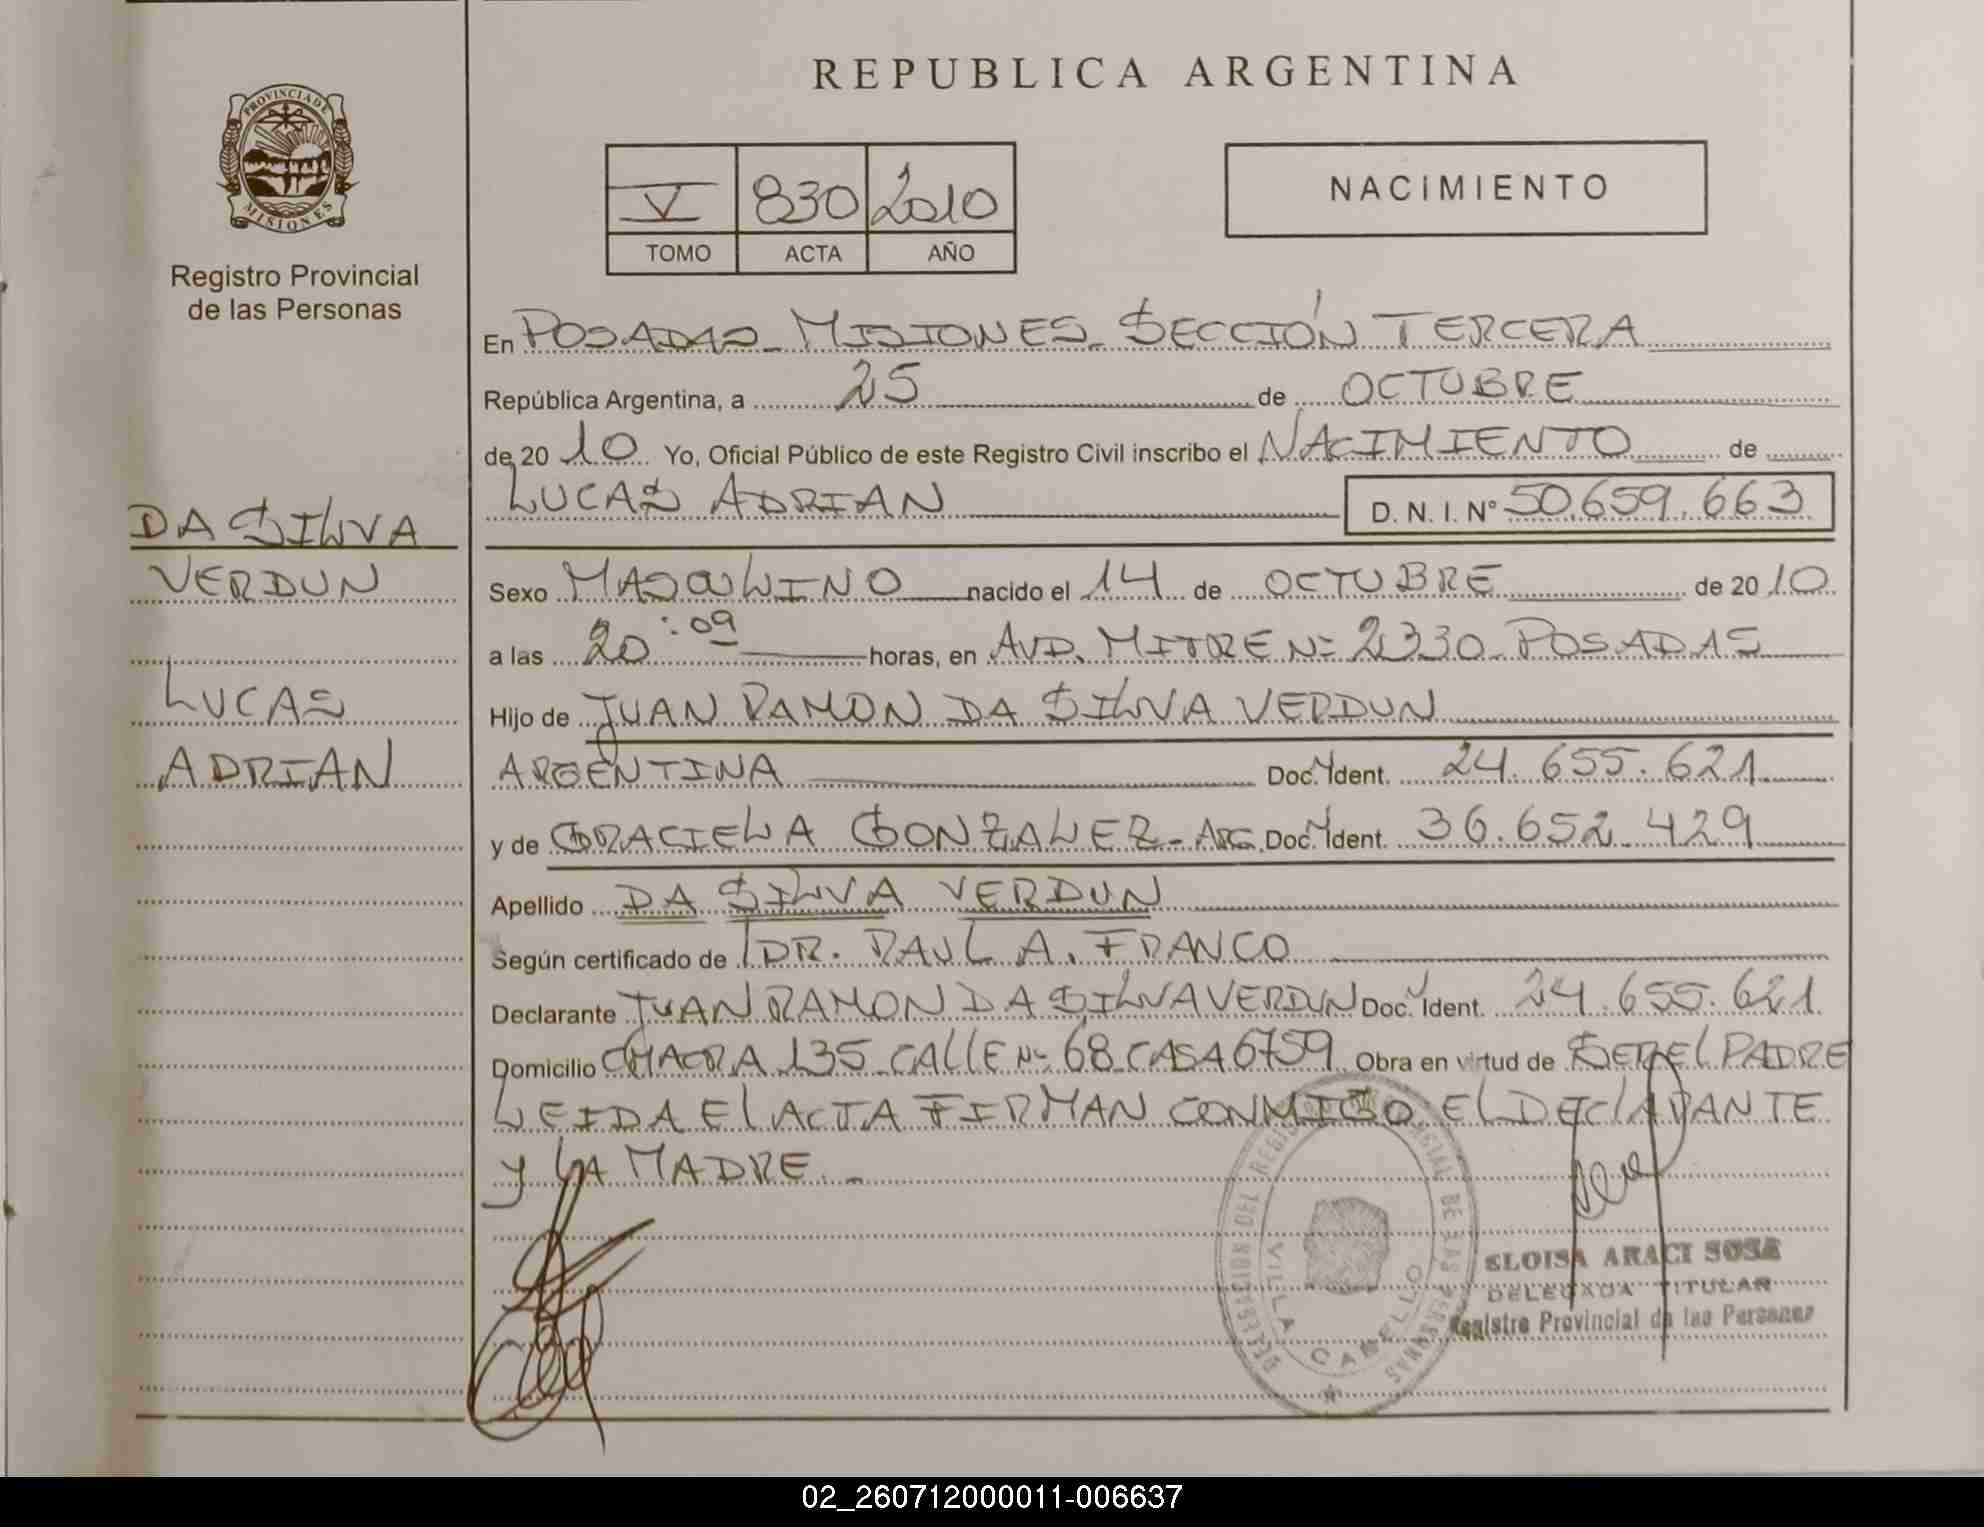 REPUBLICA ARGENTINA
PROVINCIA DE MISIONES
Registro Provincial
de las Personas
V 830 2010
TOMO ACTA AÑO
NACIMIENTO
En POSADAS_MISIONES_SECCIÓN TERCERA
República Argentina, a 25 de OCTUBRE
de 20 10 Yo, Oficial Público de este Registro Civil inscribo el NACIMIENTO de
LUCAS ADRIAN D. N. I. Nº 50.659.663
DA SILVA
VERDUN
LUCAS
ADRIAN
Sexo MASCULINO nacido el 14 de OCTUBRE de 20 10
a las 20:09 horas, en AVD. MITRE Nº 2330_POSADAS
Hijo de JUAN RAMON DA SILVA VERDUN
ARGENTINA Doc. Ident. 24.655.621
y de GRACIELA GONZALEZ-ARG. Doc. Ident. 36.652.429
Apellido DA SILVA VERDUN
Según certificado de DR. RAUL A. FRANCO
Declarante JUAN RAMON DA SILVA VERDUN Doc. Ident. 24.655.621
Domicilio CHACRA 135_CALLE Nº 68_CASA 6759 Obra en virtud de SER EL PADRE
LEIDA El ACTA FIRMAN CONMIGO EL DEClARANTE
y LA MADRE._
DELEGACION DEL REGISTRO PROVINCIAL DE LAS PERSONAS
VILLA CABELLO
ELOISA ARACI SOSA
DELEGADA TITULAR
Registro Provincial de las Personas
02_260712000011-006637